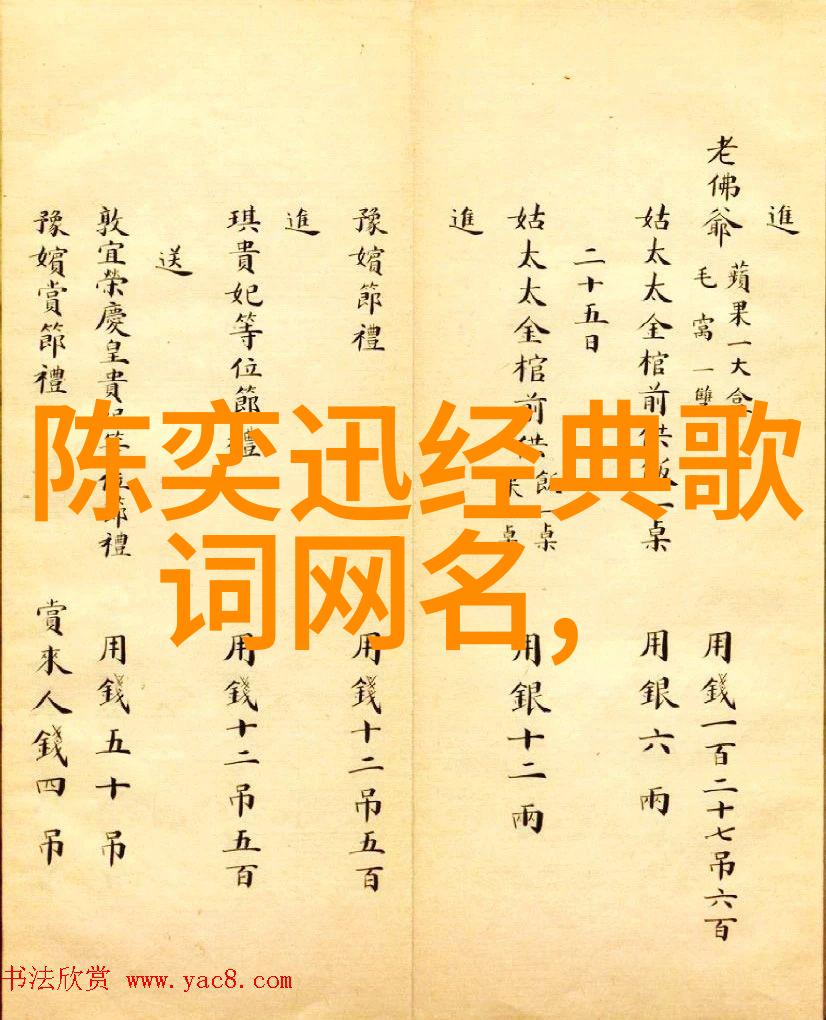 進
老佛爺 蘋果一大盒 毛窩一雙 用錢一百二十七吊六百
姑太太金棺前供飯一桌 用銀六兩
二十五日
姑太太金棺前供飯一桌 用銀十二兩
進
豫嬪節禮 用錢十二吊五百
進
琪貴妃等位節禮 用錢十二吊五百
送
敦宜榮慶皇貴妃等位節禮 用錢五十吊
豫嬪賞節禮 賞來人錢四吊
陈奕迅经典歌
词网名,
书法欣赏 www.yac8.com